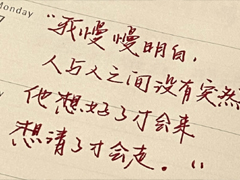 Monday
7
"我慢慢明白,
人与人之间没有突然
他想好了才会来
想清了才会走。"